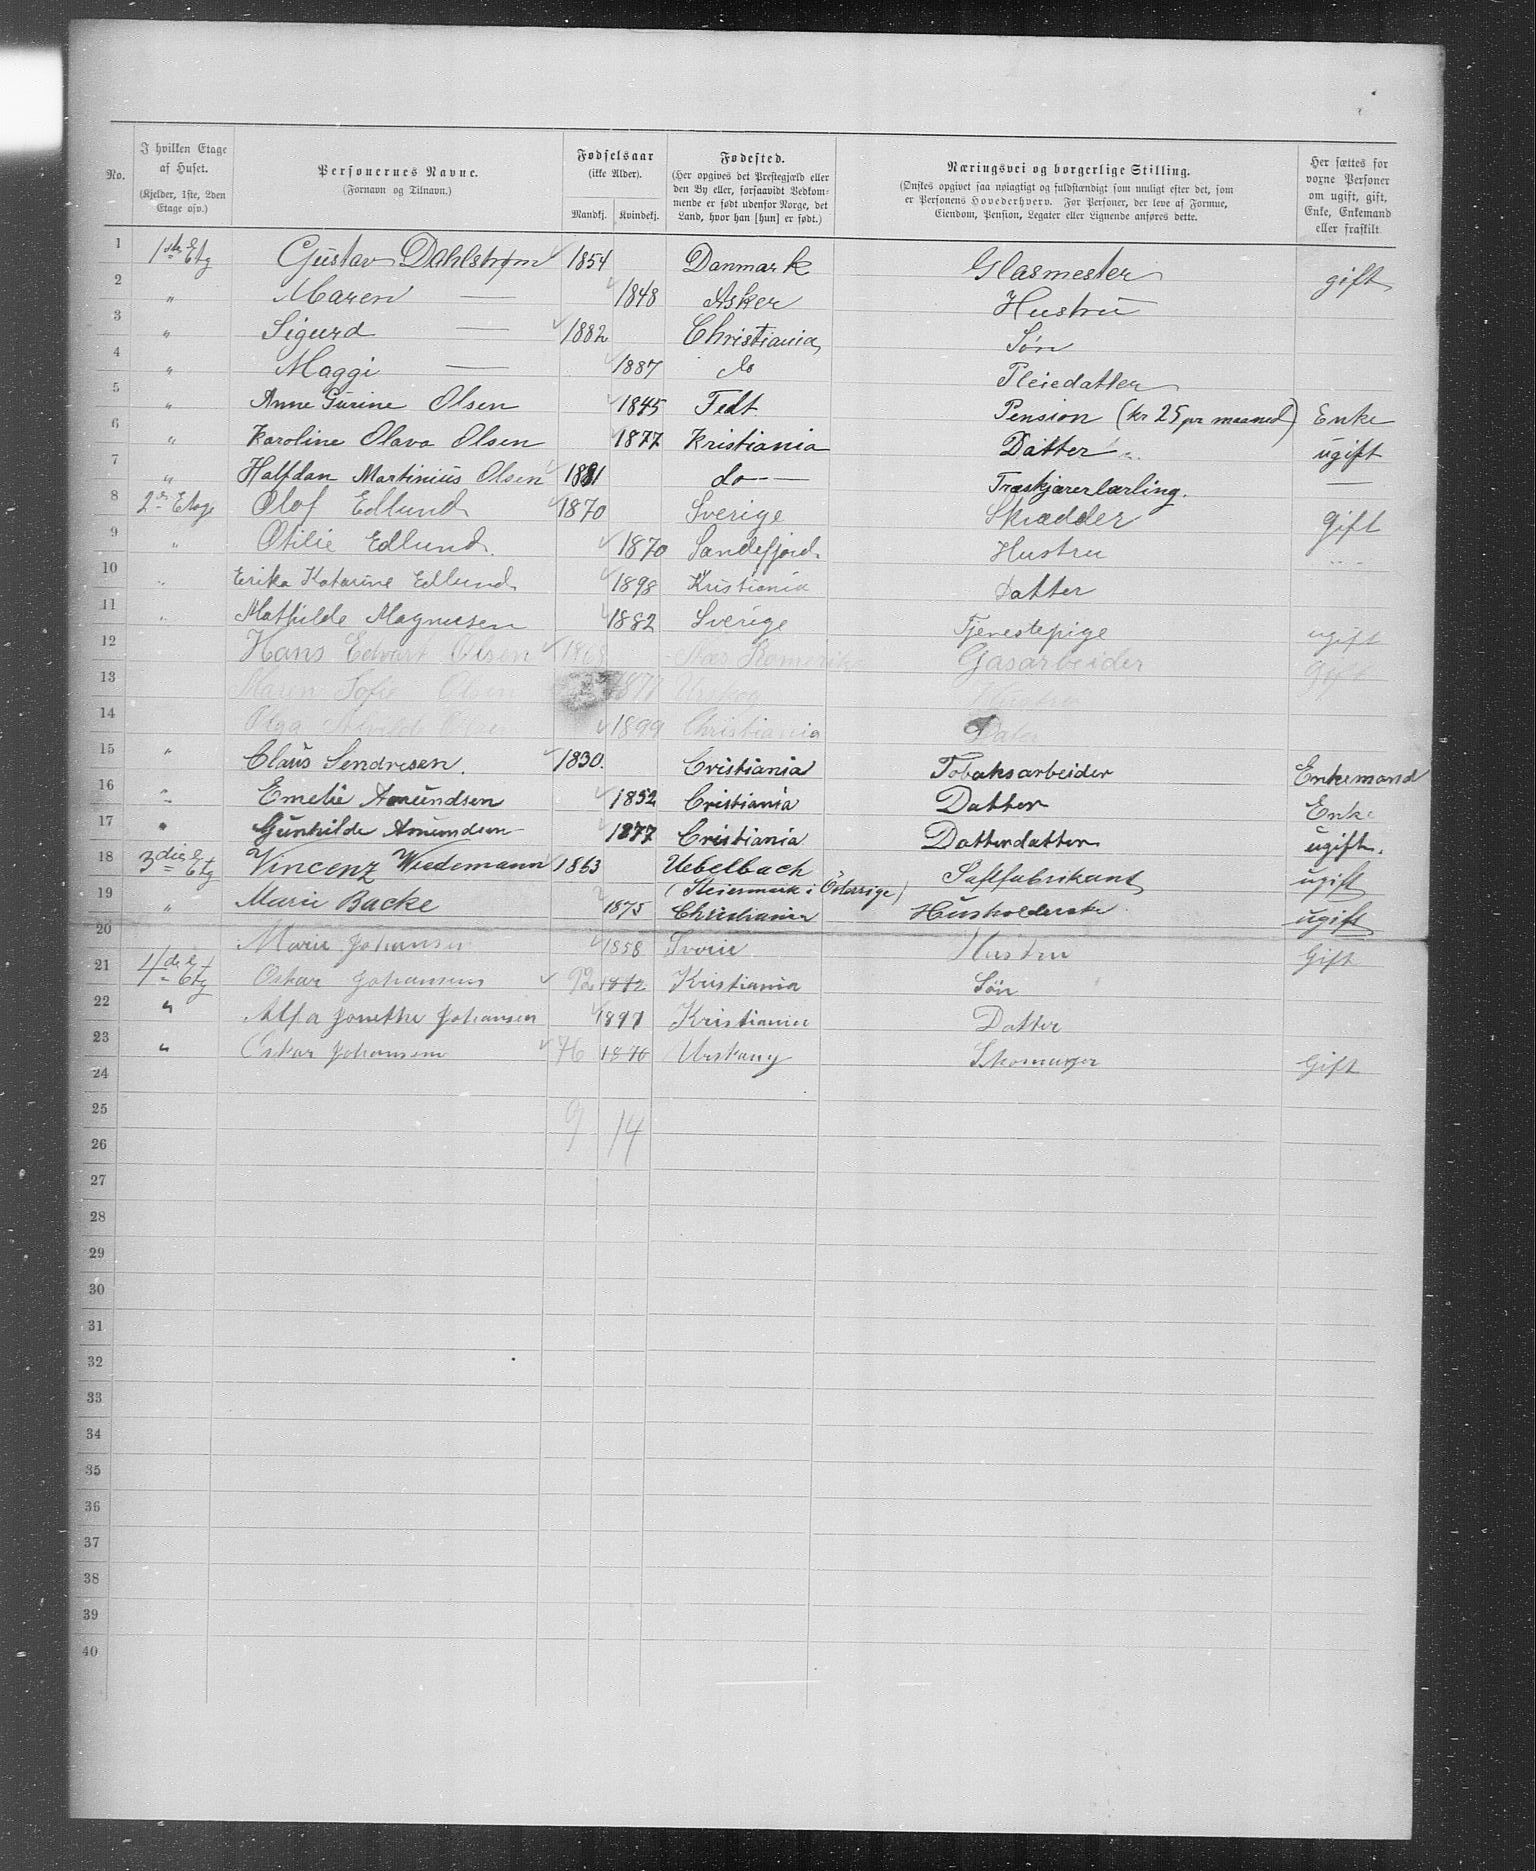 No.
I hvilken Etage af Huset.
(Kjelder, 1ste, 2den Etage osv.)
Personernes Navne.
(Fornavn og Tilnavn.)
Fødselsaar
(ikke Alder).
Mandkj. Kvindekj.
Fødested.
(Her opgives det Prestegjæld eller den By eller, forsaavidt Vedkommende er født udenfor Norge, det Land, hvor han [hun] er født.)
Næringsvei og borgerlige Stilling.
(Ønskes opgivet saa nøiagtigt og fuldstændigt som muligt efter det, som er Personens Hovederhverv. For Personer, der leve af Formue, Eiendom, Pension, Legater eller Lignende anføres dette.
Her sættes for voxne Personer om ugift, gift, Enke, Enkemand eller fraskilt
1 1ste Etg Gustav Dahlstrøm 1854 Danmark Glasmester gift
2 " Maren — 1848 Asker Hustru
3 " Sigurd — 1882 Christiania Søn
4 " Maggi — 1887 do Pleiedatter
5 " Anne Gurine Olsen 1845 Fedt Pension (kr 25 pr maaned) Enke
6 " Karoline Olava Olsen 1877 Kristiania Datter ugift
7 " Halfdan Martinius Olsen 1881 do — Træskjærerlærling. —
8 2den Etage Olof Edlund 1870 Sverige Skrædder gift
9 " Otilie Edlund. 1870 Sandefjord Hustru
10 " Erika Katarine Edlund 1898 Kristiania Datter
11 " Mathilde Magnusen 1882 Sverige Tjenestepige ugift
12 Hans Edvart Olsen 1868 Næs Romerike Gasarbeider gift
13 Maren Sofie Olsen 1877 Urskog Hustru
14 Olga Olsen 1899 Christiania Dater
15 " Claus Sendresen. 1830. Cristiania Tobaksarbeider Enkemand
16 " Emelie Amundsen 1852 Cristiania Datter Enke
17 " Gunhilde Amundsen 1877 Cristiania Datterdatter ugift.
18 3die Etg Vincenz Wiedemann 1863 Uebelbach (Steiermark i Østerrige) Saftfabrikant ugift
19 " Marie Backe 1875 Christiania Husholderske ugift
20 Marie Johansen 1858 Hustru Gift
21 4de Etg Oskar Johansens 92 1892 Kristiania Søn
22 " Alfa Jonethe Johansen 1897 Kristiania Datter
23 " Oskar Johansen 76 1876 Urskaug Skomager Gift
24
25
9 14
26
27
28
29
30
31
32
33
34
35
36
37
38
39
40